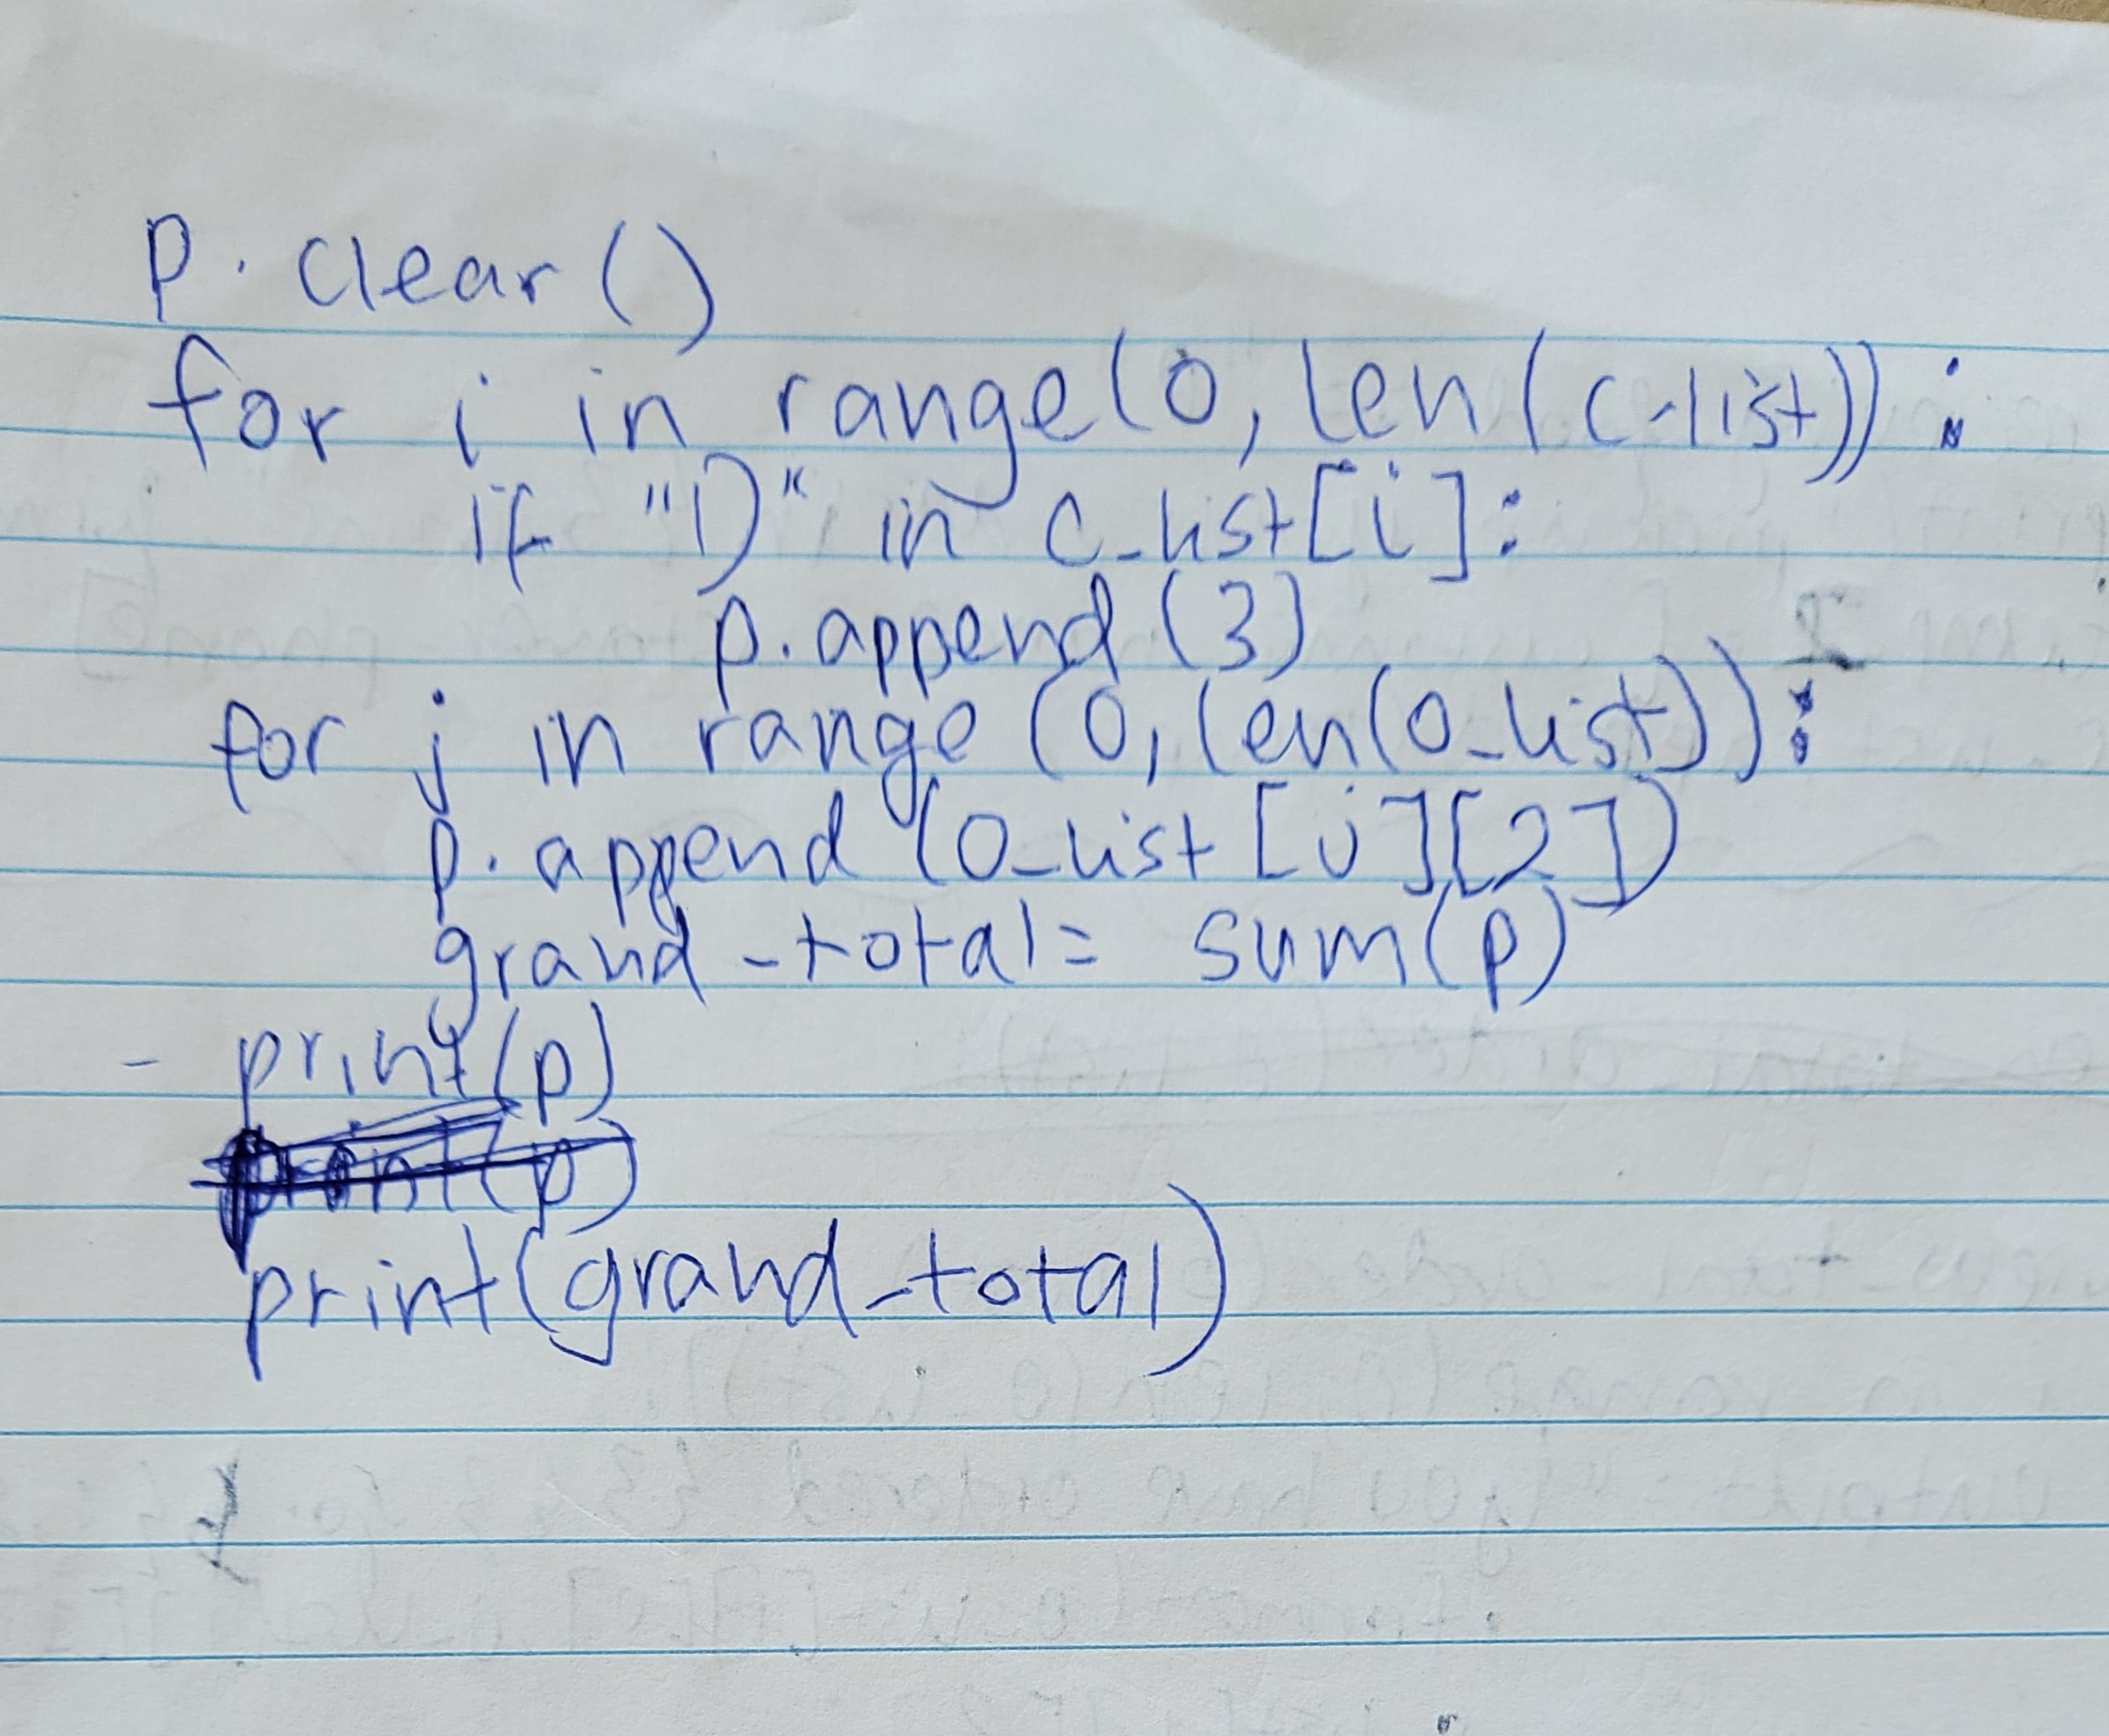 p.clear()
for i in range(0, len(c_list)):
if "D" in c_list[i]:
p.append(3)
for j in range(0, len(o_list)):
p.append(o_list[j][2])
grand_total= sum(p)
- print(p)
print(p)
print(grand_total)